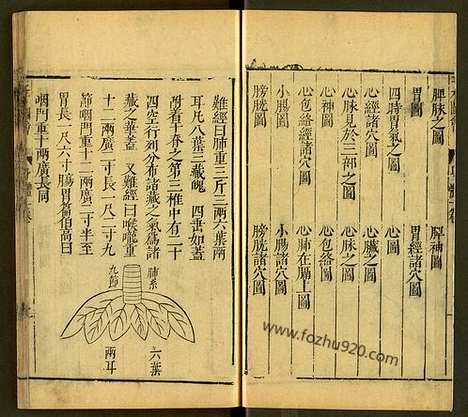 脾脉之圖
脾神圖
胃圖
胃經諸穴圖
四時胃氣之圖
心圖
心經諸穴圖
心臟之圖
心脉見於三部之圖
心脉之圖
心神圖
心包絡圖
心包絡經諸穴圖
心肺在膈上圖
小腸圖
小腸諸穴圖
膀胱圖
膀胱諸穴圖
難經曰肺重三斤三兩六葉兩
耳凡八葉主藏魄 四垂如蓋
附着于脊之第三椎中有二十
四空行列分布諸藏之氣爲諸
藏之華蓋 又難經曰喉嚨重
十二兩廣二寸長一尺二寸九
節咽門重十二兩廣二寸半至
胃長一尺六寸腸胃篇伯高曰
咽門重十兩廣長同
肺系
九節
六葉
兩耳
www.fozhu920.com